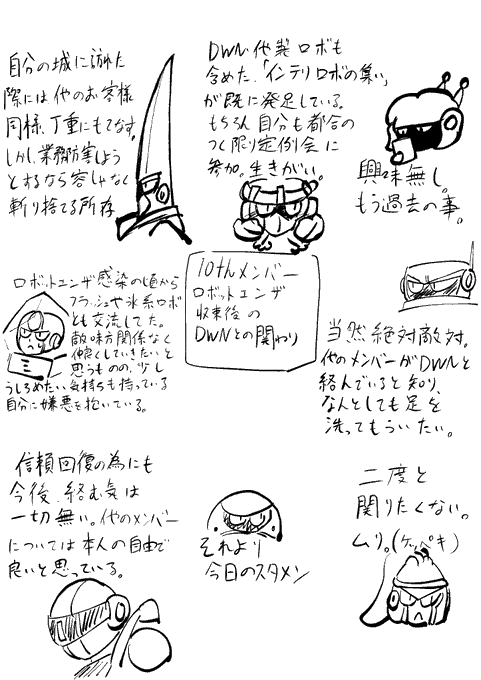 自分の城に訪れた
際には他のお客様
同様、丁重にもてなす。
しかし、業務妨害しよう
とするなら容しゃなく
斬り捨てる所存
DWN、他製ロボも
含めた、「インテリロボの集い」
が既に発足している。
もちろん自分も都合の
つく限り定例会に
参加。生きがい。
興味無し。
もう過去の事。
ロボットエンザ感染の頃から
フラッシュや氷系ロボ
とも交流してた。
敵味方関係なく
仲良くしていきたいと
思うものの、少し
うしろめたい気持ちも持っている
自分に嫌悪を抱いている。
10thメンバー
ロボットエンザ
収束後の
DWNとの関わり
当然絶対敵対。
他のメンバーがDWNと
絡んでいると知り、
なんとしても足を
洗ってもらいたい。
信頼回復の為にも
今後、絡む気は
一切無い。他のメンバー
については本人の自由で
良いと思っている。
それより
今日のスタメン
二度と
関りたくない。
ムリ。(ケッペキ)